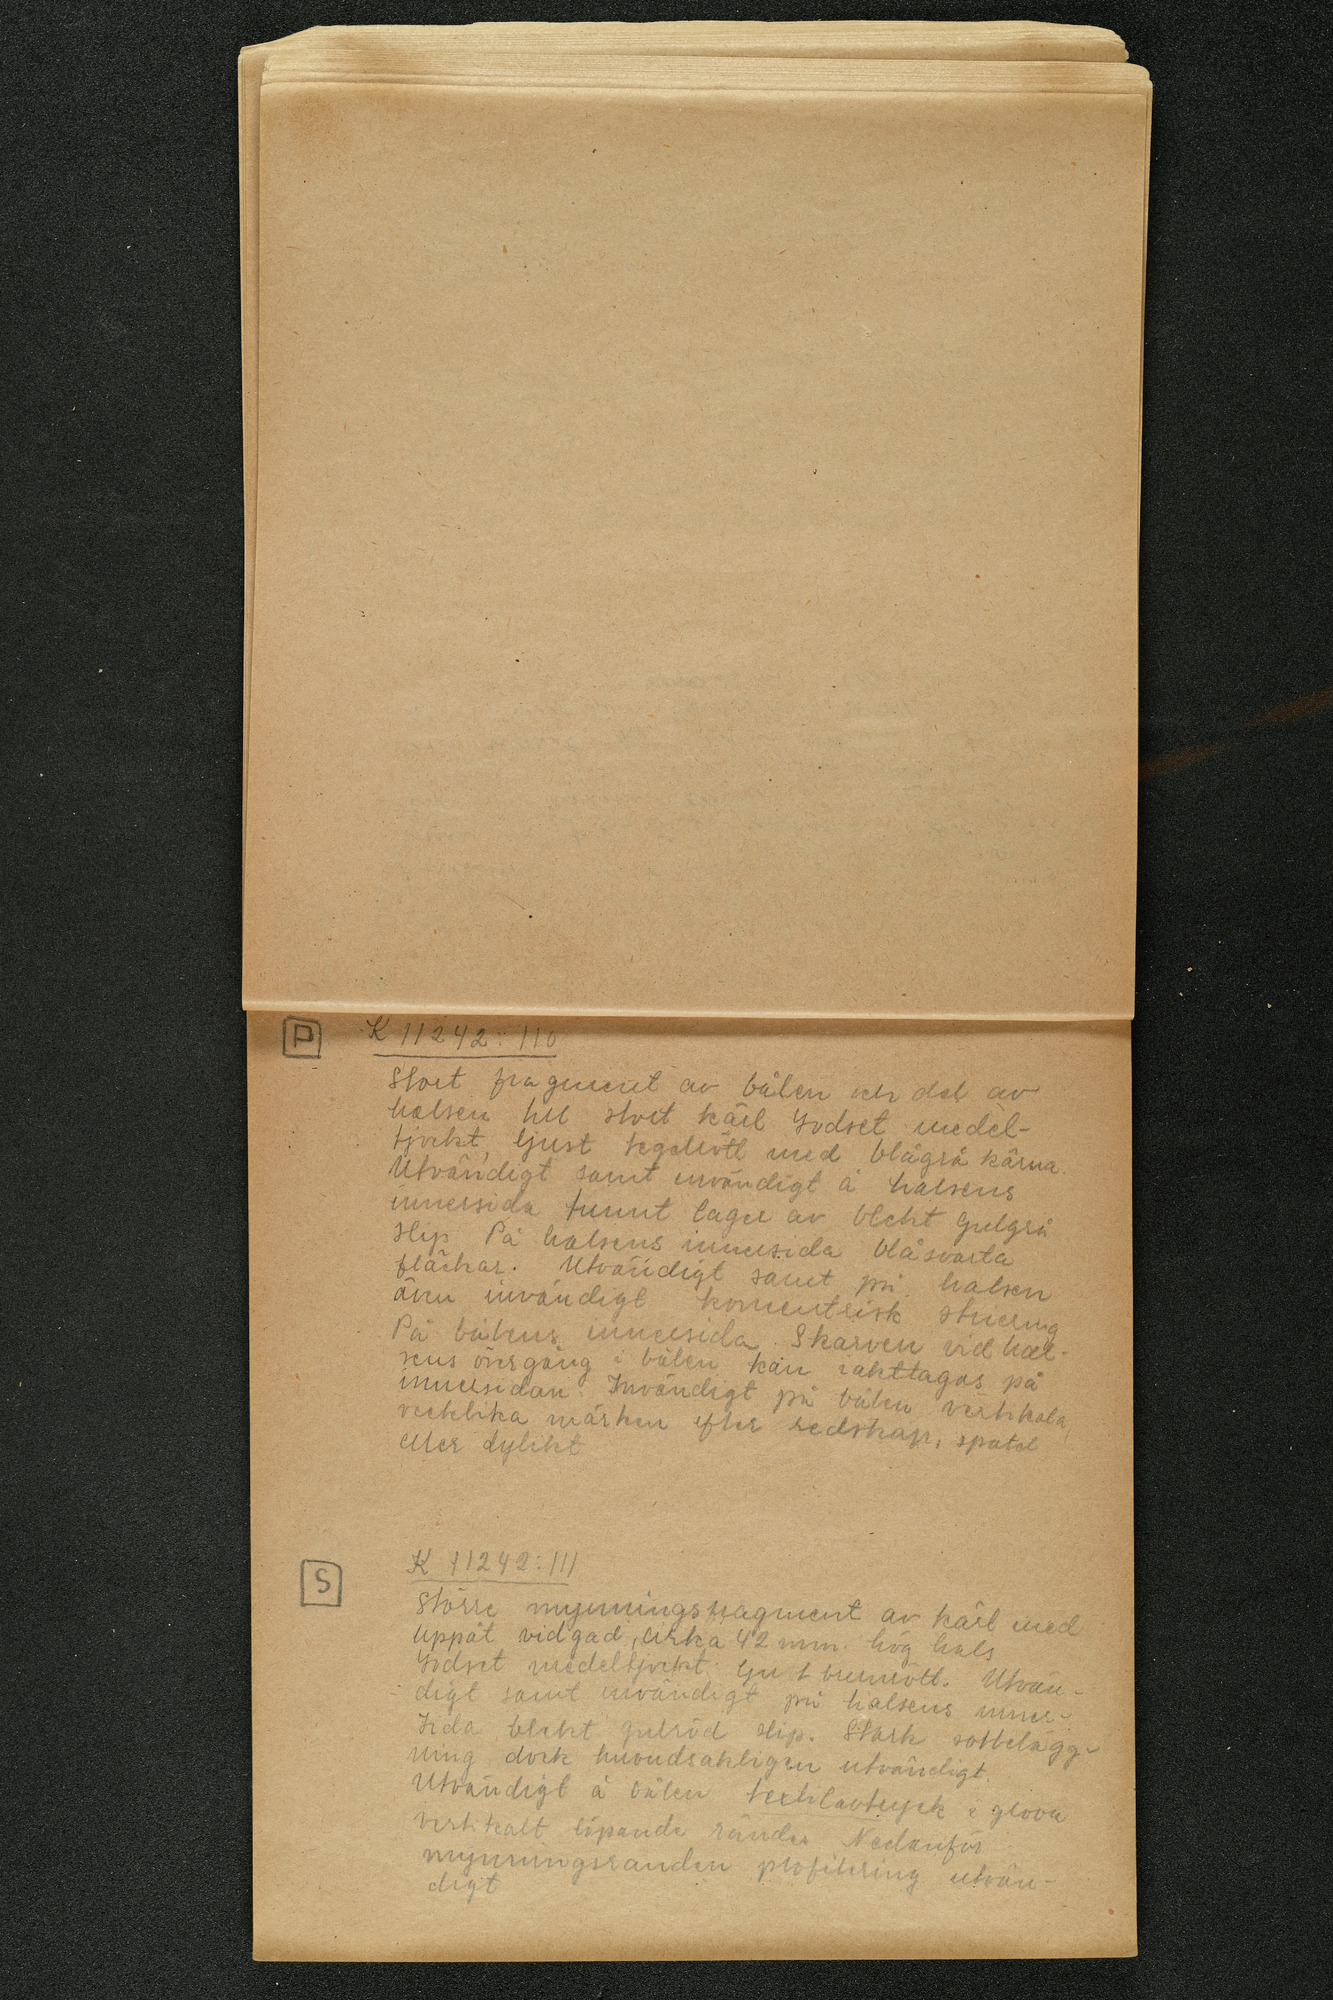 P K 11242:110
Stort fragment av bålen och del av
halsen till stort kärl Godset medel-
tjockt, ljust tegelrött med blågrå kärna.
Utvändigt samt invändigt å halsens
innersida tunnt lager av blekt gulgrå
slip På halsens innersida blåsvarta
fläckar. Utvändigt samt på halsen
även invändigt koncentrisk striering
På bålens innersida. Skarven vid hal-
sens övergång i bålen kan iakttagas på
innersidan. Invändigt på bålen vertikala,
vecklika märken efter redskap, spatel
eller dylikt
S K 11242:111
Större mynningsfragment av kärl med
uppåt vidgad, cirka 42 mm. hög hals
Godset medeltjockt ljust brunrött. Utvän-
digt samt invändigt på halsens inner-
sida blekt gulröd slip. Stark sotbelägg-
ning dock huvudsakligen utvändigt.
Utvändigt å bålen textilavtryck i grova
vertikalt löpande ränder Nedanför
mynningsranden profilering utvän-
digt